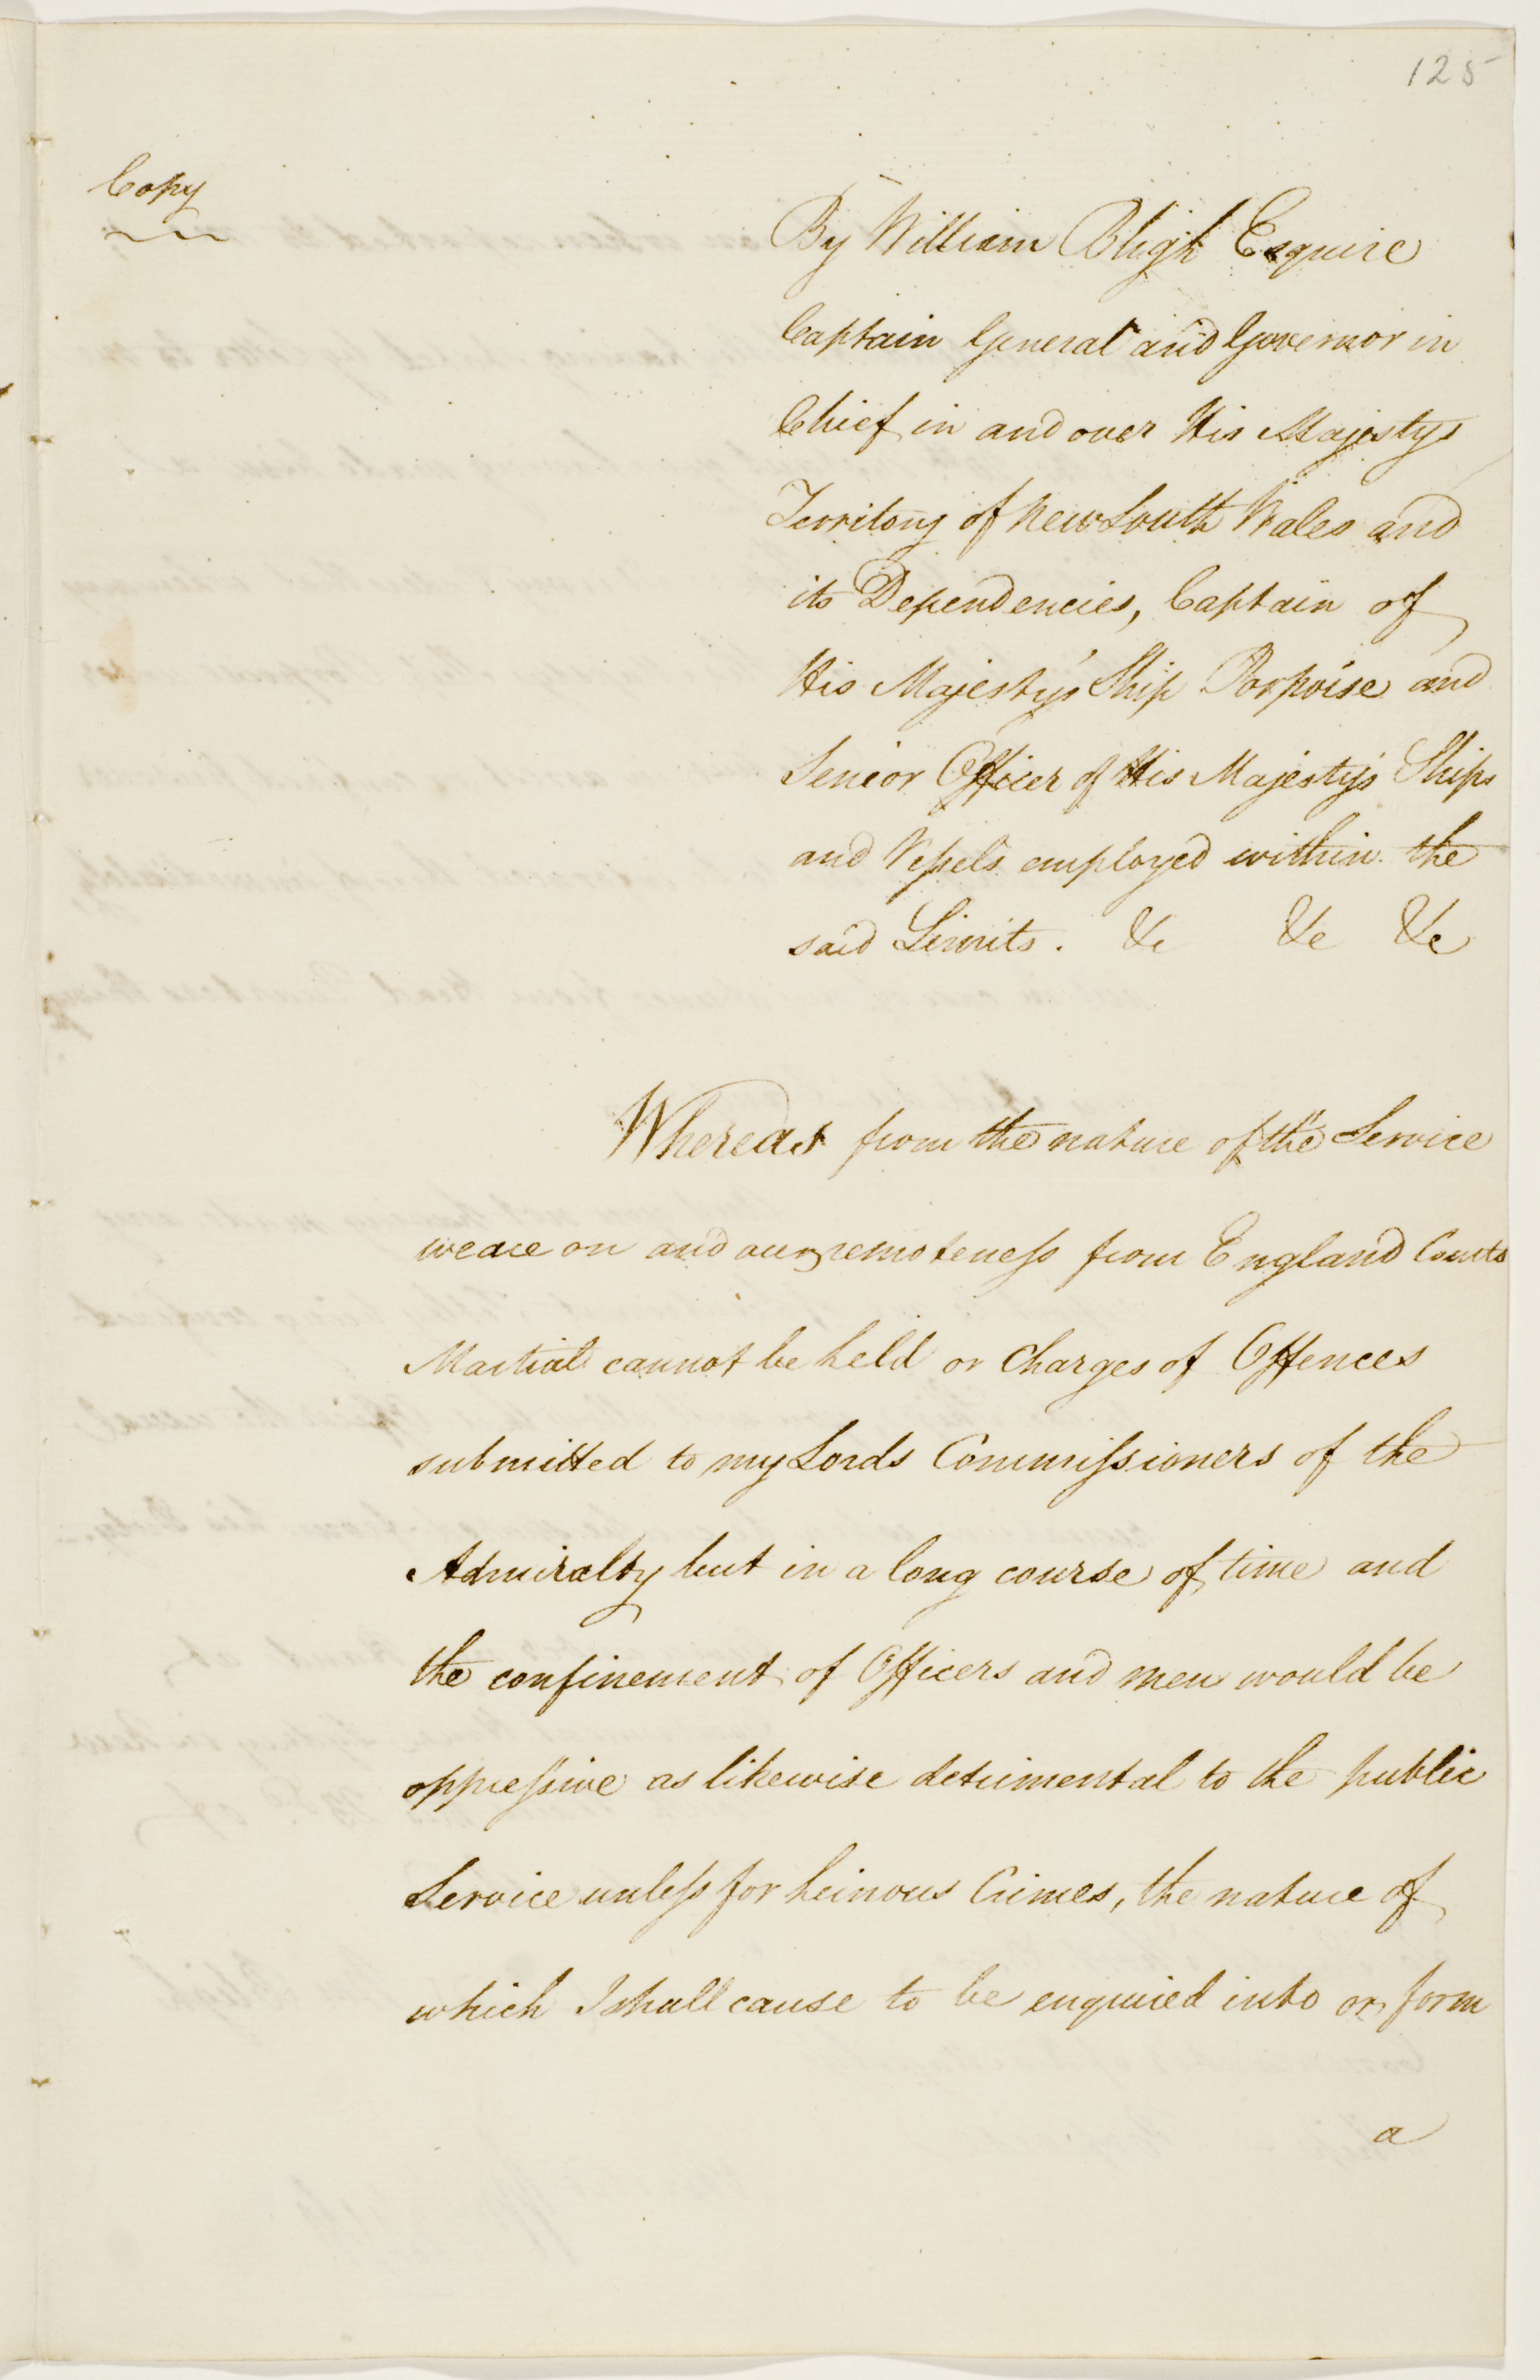 125
Copy
By William Bligh Esquire
Captain General and Governor in
Chief in and over His Majestys
Territory of New South Wales and
its Dependencies, Captain of
His Majesty's Ship Porpoise and
Senior Officer of His Majesty's Ships
and Vessels employed within the
said Limits. &c &c &c
Whereas from the nature of the Service
we are on and our remoteness from England Courts
Martial cannot be held or Charges of Offences
submitted to my Lords Commissioners of the
Admiralty but in a long course of time and
the confinement of Officers and men would be
oppressive as likewise detrimental to the public
Service unless for heinous Crimes, the nature of
which I shall cause to be enquired into or form
a